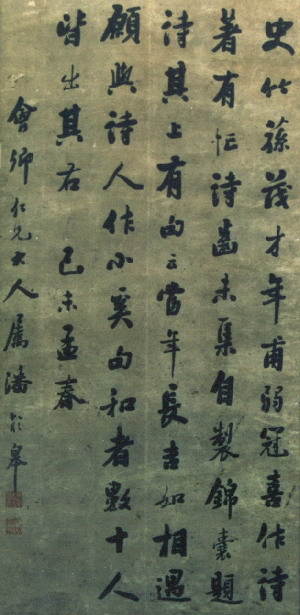 史竹蓀茂才年甫弱冠喜作詩
著有忙詩齒未集自製錦囊題
詩其上有句云當年長吉如相遇
願與詩人作小奚句和者數十人
皆出其右 己未孟春
會卿仁兄大人屬潘於皋